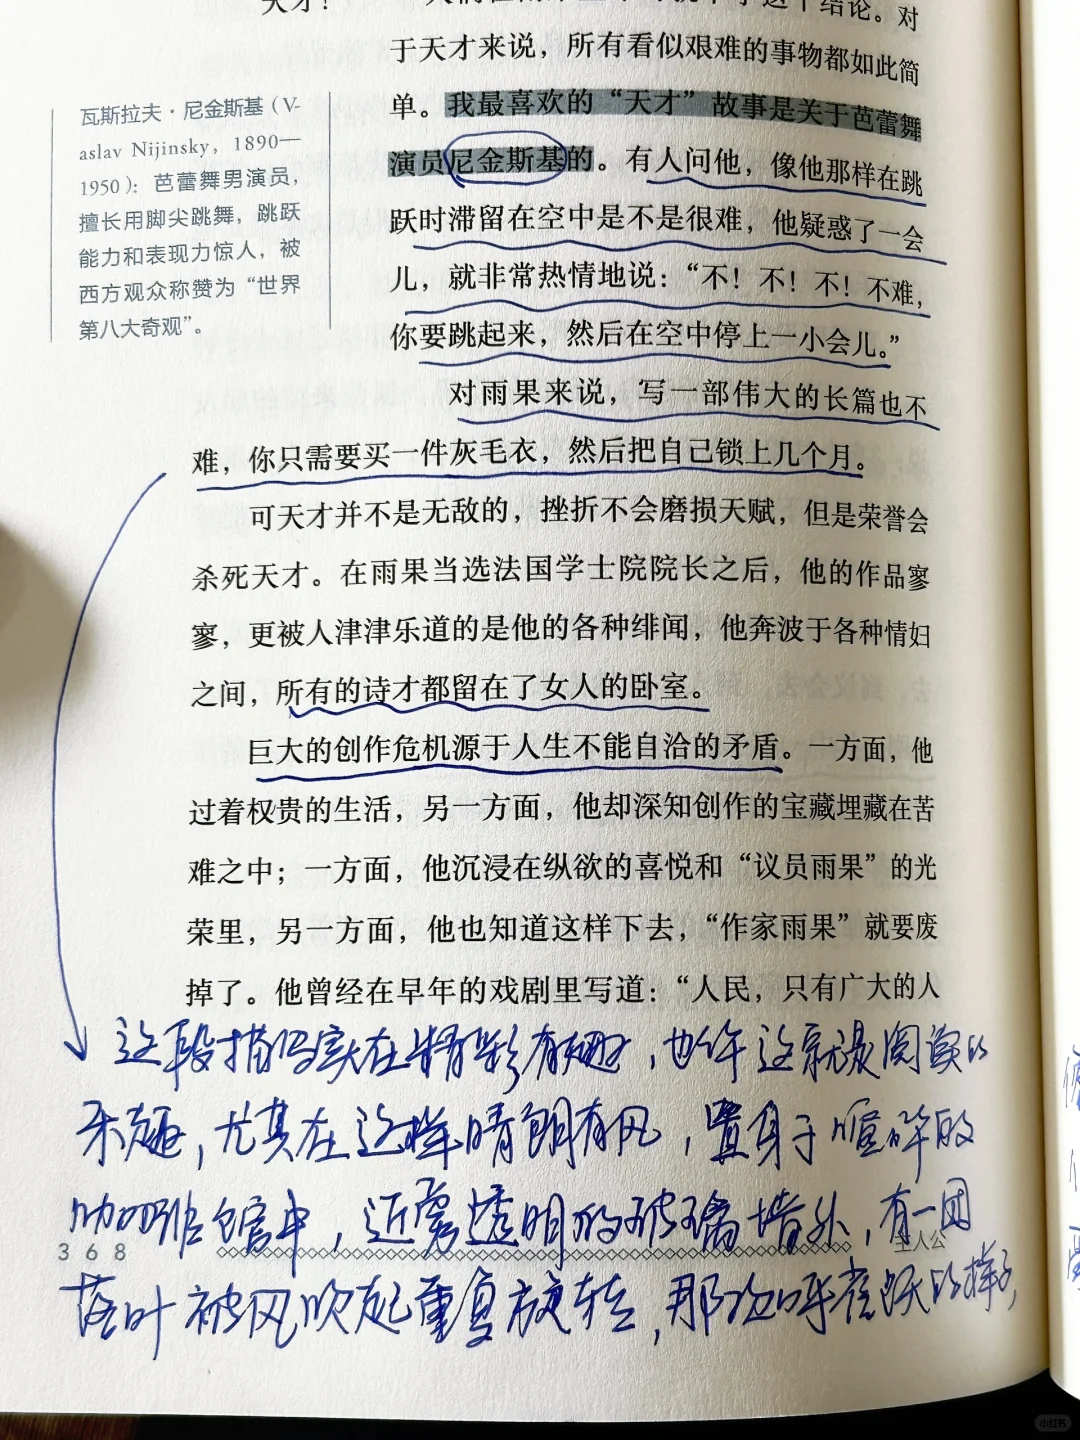 天才！
这个结论。对
于天才来说，所有看似艰难的事物都如此简
单。我最喜欢的“天才”故事是关于芭蕾舞
演员尼金斯基的。有人问他，像他那样在跳
跃时滞留在空中是不是很难，他疑惑了一会
儿，就非常热情地说：“不！不！不！不难，
你要跳起来，然后在空中停上一小会儿。”
对雨果来说，写一部伟大的长篇也不
难，你只需要买一件灰毛衣，然后把自己锁上几个月。
可天才并不是无敌的，挫折不会磨损天赋，但是荣誉会
杀死天才。在雨果当选法国学士院院长之后，他的作品寥
寥，更被人津津乐道的是他的各种绯闻，他奔波于各种情妇
之间，所有的诗才都留在了女人的卧室。
巨大的创作危机源于人生不能自洽的矛盾。一方面，他
过着权贵的生活，另一方面，他却深知创作的宝藏埋藏在苦
难之中；一方面，他沉浸在纵欲的喜悦和“议员雨果”的光
荣里，另一方面，他也知道这样下去，“作家雨果”就要废
掉了。他曾经在早年的戏剧里写道：“人民，只有广大的人
瓦斯拉夫·尼金斯基（V-
aslav Nijinsky，1890—
1950）：芭蕾舞男演员，
擅长用脚尖跳舞，跳跃
能力和表现力惊人，被
西方观众称赞为“世界
第八大奇观”。
这段描写实在精彩有趣，也许这就是阅读的
乐趣，尤其在这样晴朗有风，置身于喧哗的
咖啡馆中，近旁透明的玻璃墙外，有一团
落叶被风吹起重复旋转，那欢呼雀跃的样子，
368
主人公
小红书